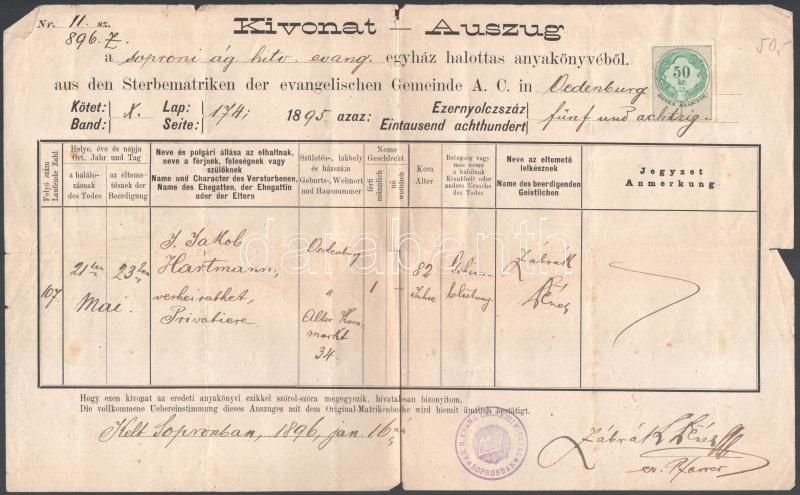 Nr. 11. sz.
896. Z.
Kivonat — Auszug
50,-
a soproni ág. hitv. evang. egyház halottas anyakönyvéből.
50
kr.
aus den Sterbematriken der evangelischen Gemeinde A. C. in Oedenburg
Kötet: Lap: Ezernyolczszáz
X. 174; 1895 azaz:
Band: Seite: Eintausend achthundert
fünf und achtzig.
Folyó szám
Laufende Zahl
Helye, éve és napja
Ort, Jahr und Tag
a halálo-
zásnak
des Todes
az elteme-
tésnek der
Beerdigung
Neve és polgári állása az elhaltnak,
neve a férjnek, feleségnek vagy
szülőknek
Name und Character des Verstorbenen,
Name des Ehegatten, der Ehngattin
oder der Eltern
Születés-, lakhely
és házszám
Geburts-, Wohnort
und Hausnummer
Neme
Geschlecht
férfi
männlich
nő
weiblich
Kora
Alter
Betegség vagy
más neme
a halálnak
Krankheit oder
andere Ursache
des Todes
Neve az eltemető
lelkésznek
Name des beerdigenden
Geistlichen
Jegyzet
Anmerkung
107.
21ten
23ten
Mai.
J. Jakob
Hartmann,
verheirathet,
Privatiere.
Oedenburg
"
Alter Korn-
markt
34.
1 –
82
Jahre
Gehirn-
blutung.
Zábrák
Dénes
Hogy ezen kivonat az eredeti anyakönyvi czikkel szóról-szóra megegyezik, hivatalosan bizonyitom.
Die vollkommene Uebereinstimmung dieses Auszuges mit dem Original-Matrikenbuche wird hiemit ämtlich bestätigt.
Kelt Sopronban, 1896, jan. 16án
SOPRONBAN
Zábrák Dénes
ev. Pfarrer
darabanth